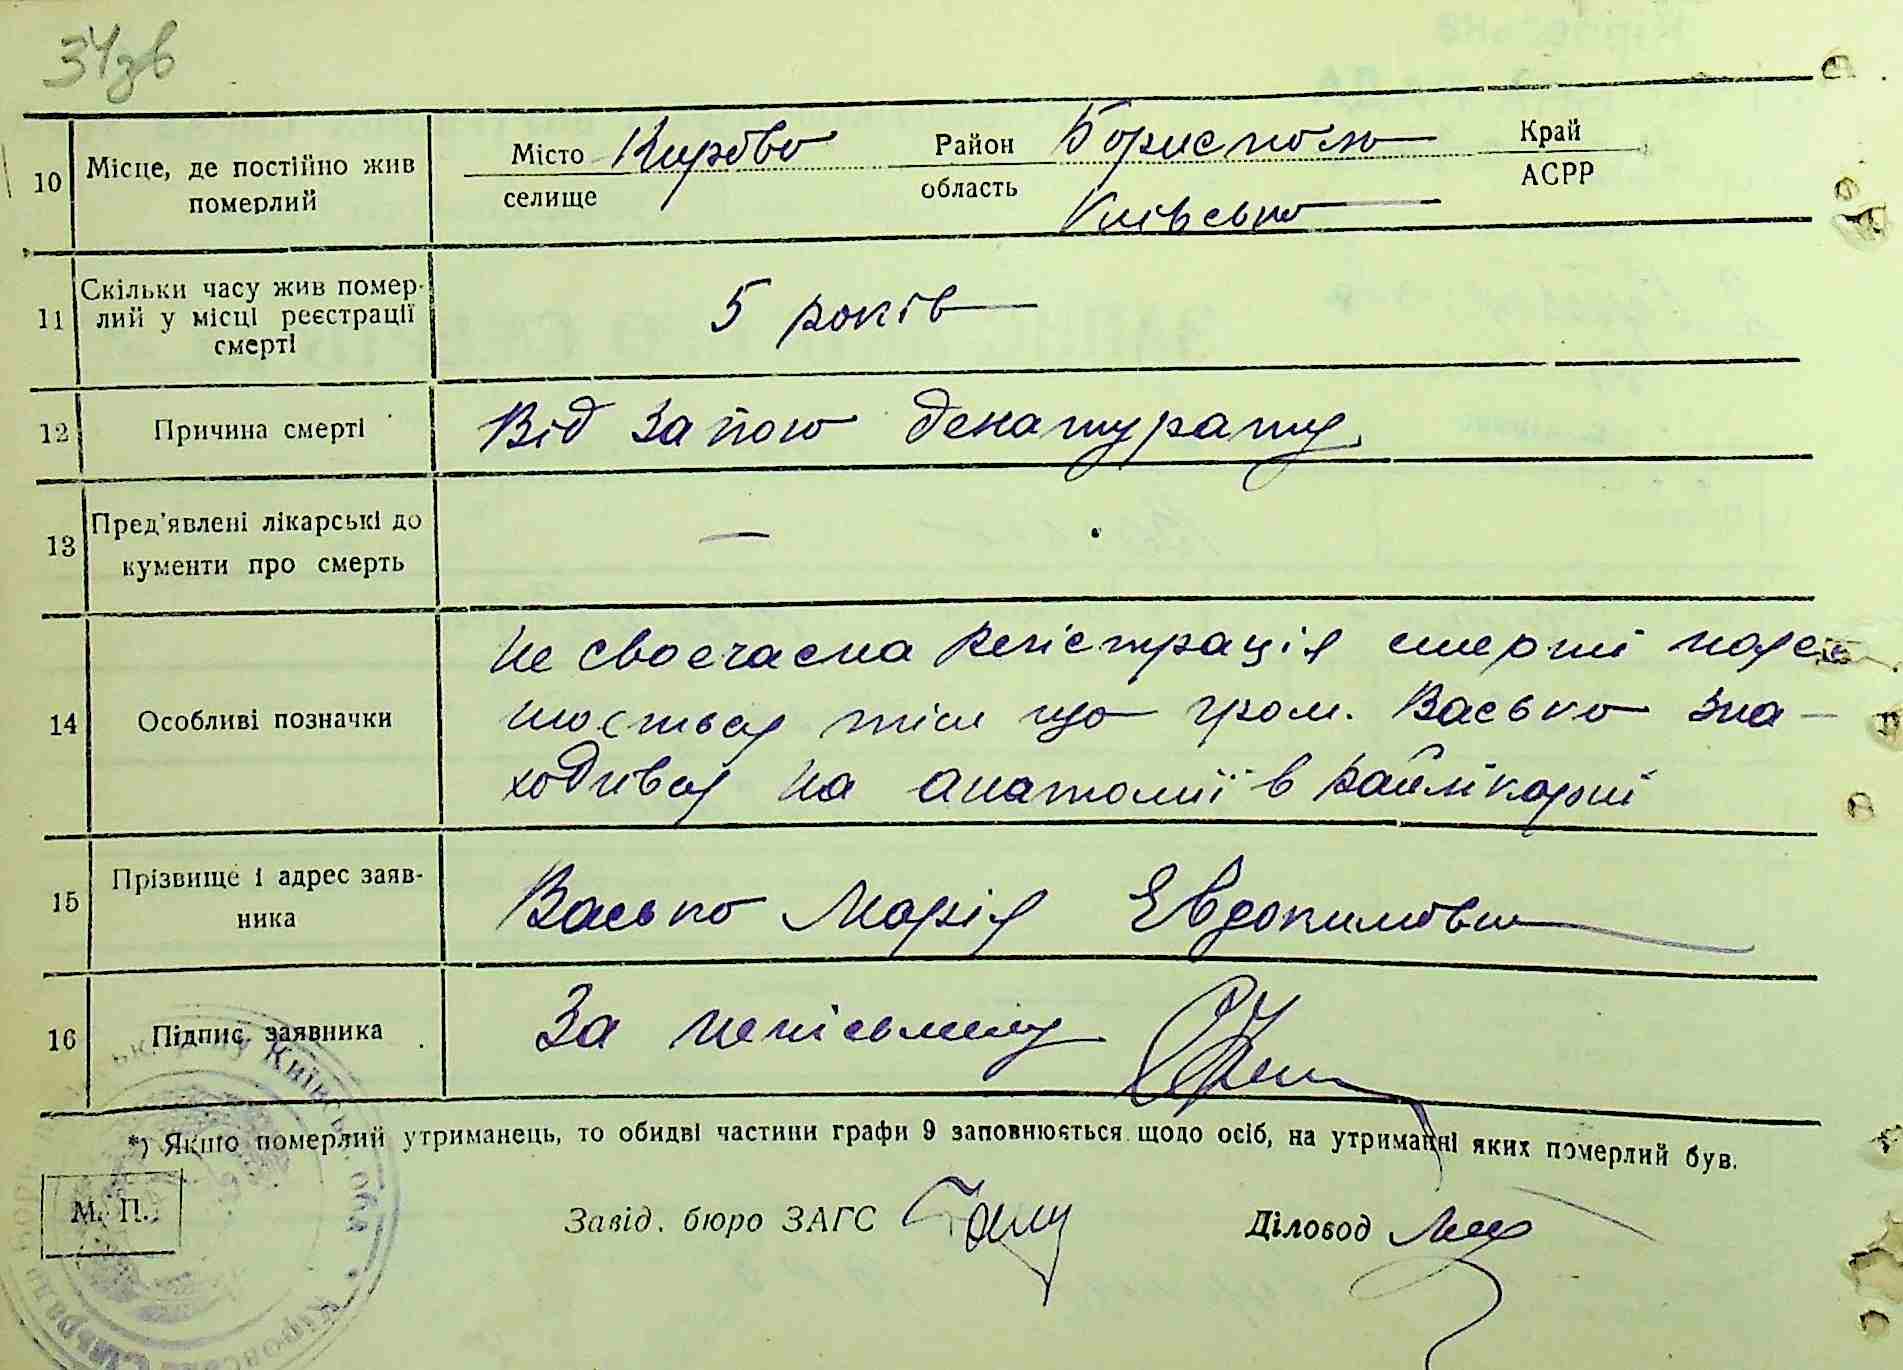 34зв
10 Місце, де постійно жив померлий
Місто Кирово Район Бориспольс Край
селище область Київсько АСРР
11 Скільки часу жив помер-
лий у місці реєстрації
смерті
5 років
12 Причина смерті Від запою денатурату.
13 Пред'явлені лікарські до
кументи про смерть
—
14 Особливі позначки
Не своєчасна регістрація смерті пояс
нюється тім що гром. Васько зна-
ходився на анатомії в райлікарні
15 Прізвище і адрес заяв-
ника
Васько Марія Евдокимовн
16 Підпис заявника За неписьмену
*) Якщо померлий утриманець, то обидві частини графи 9 заповнюється щодо осіб, на утриманні яких померлий був.
М. П.
Завід. бюро ЗАГС
Діловод